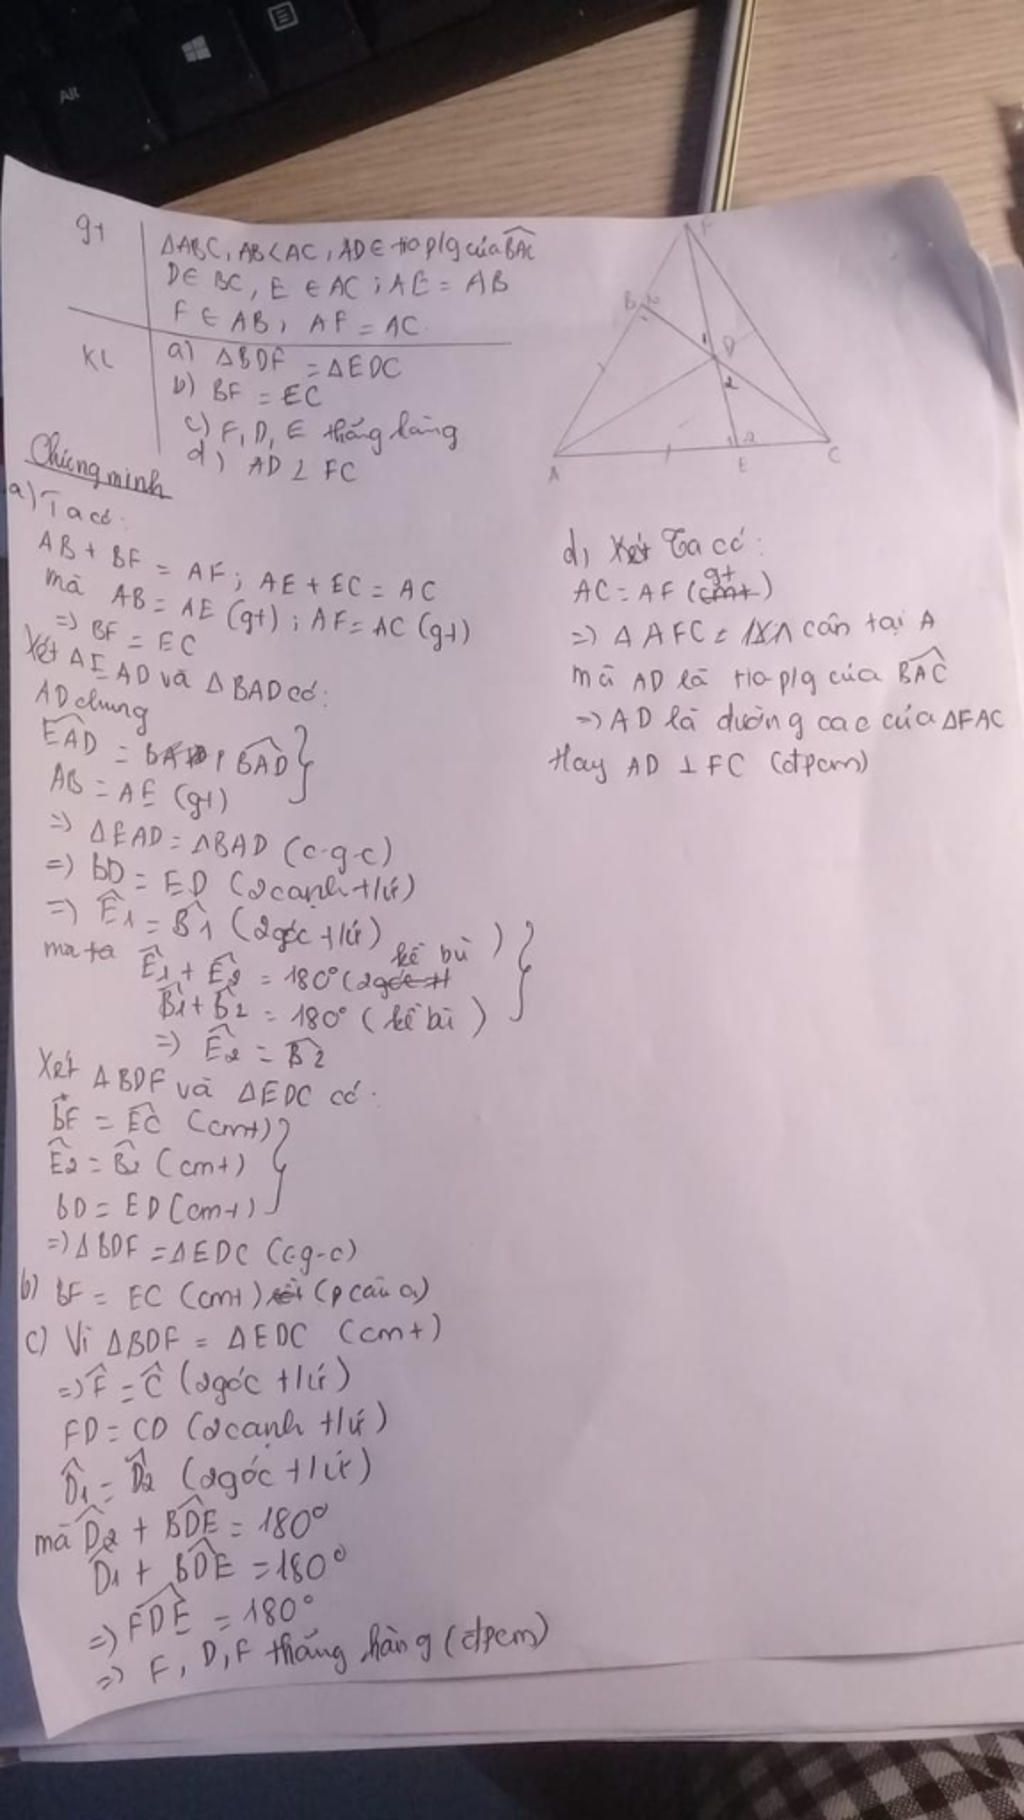 Alt
gt
ΔABC, AB<AC, AD ∈ tia p/g của BAC
D∈ BC, E ∈ AC; AE = AB
F ∈ AB, AF = AC
KL
a) ΔBDF = ΔEDC
b) BF = EC
c) F, D, E thẳng hàng
d) AD ⊥ FC
F
B 2
1 D
2
1 2
A E C
Chứng minh
a) Ta có:
AB + BF = AF; AE + EC = AC
mà AB = AE (gt); AF = AC (gt)
=> BF = EC
Xét ΔEAD và ΔBAD có:
AD chung
EAD = BAD
AB = AE (gt)
=> ΔEAD = ΔBAD (c-g-c)
=> BD = ED (2 cạnh t/ứ)
=> Ê1 = B̂1 (2 góc t/ứ)
mà ta Ê1 + Ê2 = 180° (2 góc kề bù)
B̂1 + B̂2 = 180° (kề bù)
=> Ê2 = B̂2
Xét ΔBDF và ΔEDC có:
BF = EC (cmt)
Ê2 = B̂2 (cmt)
BD = ED (cmt)
=> ΔBDF = ΔEDC (c-g-c)
b) BF = EC (cmt) (p câu a)
c) Vì ΔBDF = ΔEDC (cmt)
=> F̂ = Ĉ (2 góc t/ứ)
FD = CD (2 cạnh t/ứ)
D̂1 = D̂2 (2 góc t/ứ)
mà D̂2 + BDE = 180°
D̂1 + BDE = 180°
=> FDE = 180°
=> F, D, F thẳng hàng (đpcm)
d, Xét Ta có:
AC = AF (gt)
=> Δ AFC cân tại A
mà AD là tia p/g của BAC
=> AD là đường cao của ΔFAC
Hay AD ⊥ FC (đpcm)